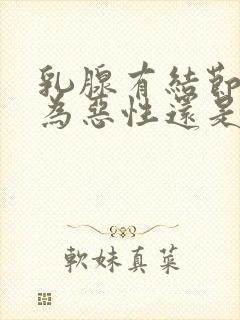 乳腺有結節
為惡性還是
軟妹真菜